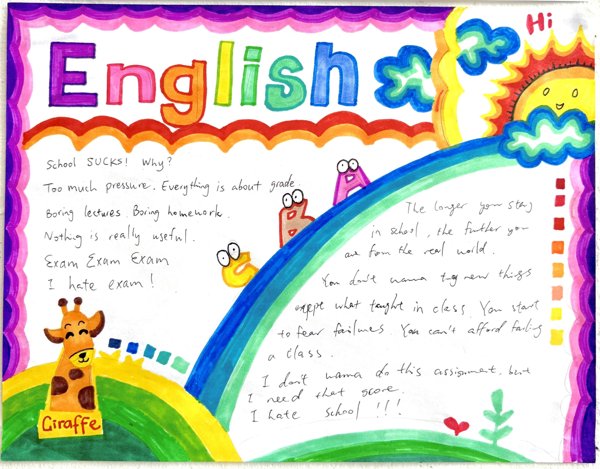 Hi
English
School SUCKS! Why?
Too much pressure. Everything is about grade
Boring lectures. Boring homework.
Nothing is really useful.
Exam Exam Exam
I hate exam!
A
B
C
The longer you stay
in school, the further you
are from the real world.
You don't wanna try new things
except what taught in class. You start
to fear failures. You can't afford failing
a class.
I don't wanna do this assignment. but
I need that score.
I hate school !!!
Giraffe